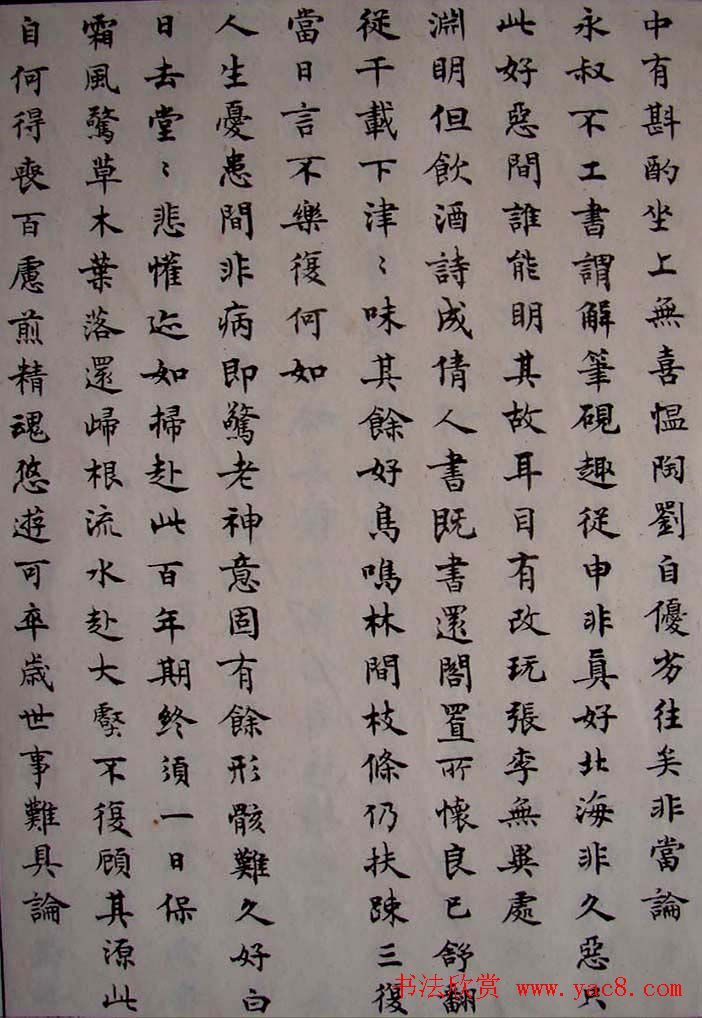 中有斟酌坐上無喜愠陶劉自優劣往矣非當論
永叔不工書謂解筆硯趣從申非真好北海非久惡只
此好惡間誰能明其故耳目有改玩張李無異處
淵明但飲酒詩成倩人書既書還閣置所懷良已舒翻
從千載下津〻味其餘好鳥鳴林間枝條仍扶踈三復
當日言不樂復何如
人生憂患間非病即驚老神意固有餘形骸難久好白
日去堂〻悲懽迹如掃赴此百年期終須一日保
霜風驚草木葉落還歸根流水赴大壑不復顧其源此
自何得喪百慮煎精魂悠遊可卒歲世事難具論
书法欣赏 www.yac8.com